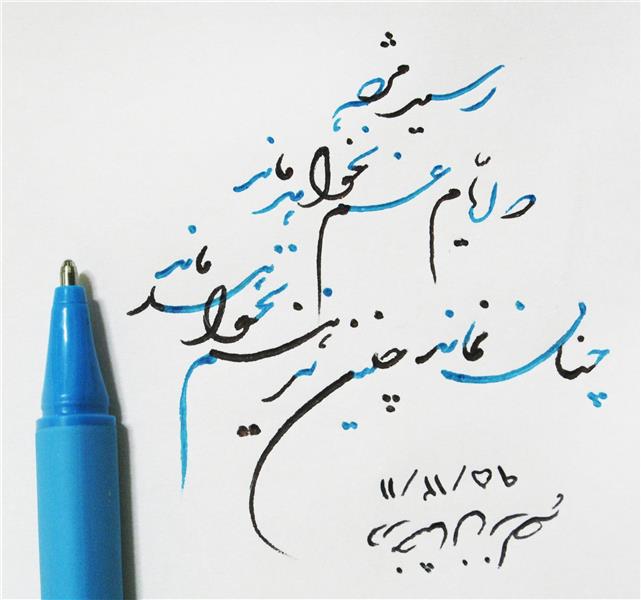 رسید مژده
که ایام غم نخواهد ماند
چنان نماند چنین نیز هم نخواهد ماند